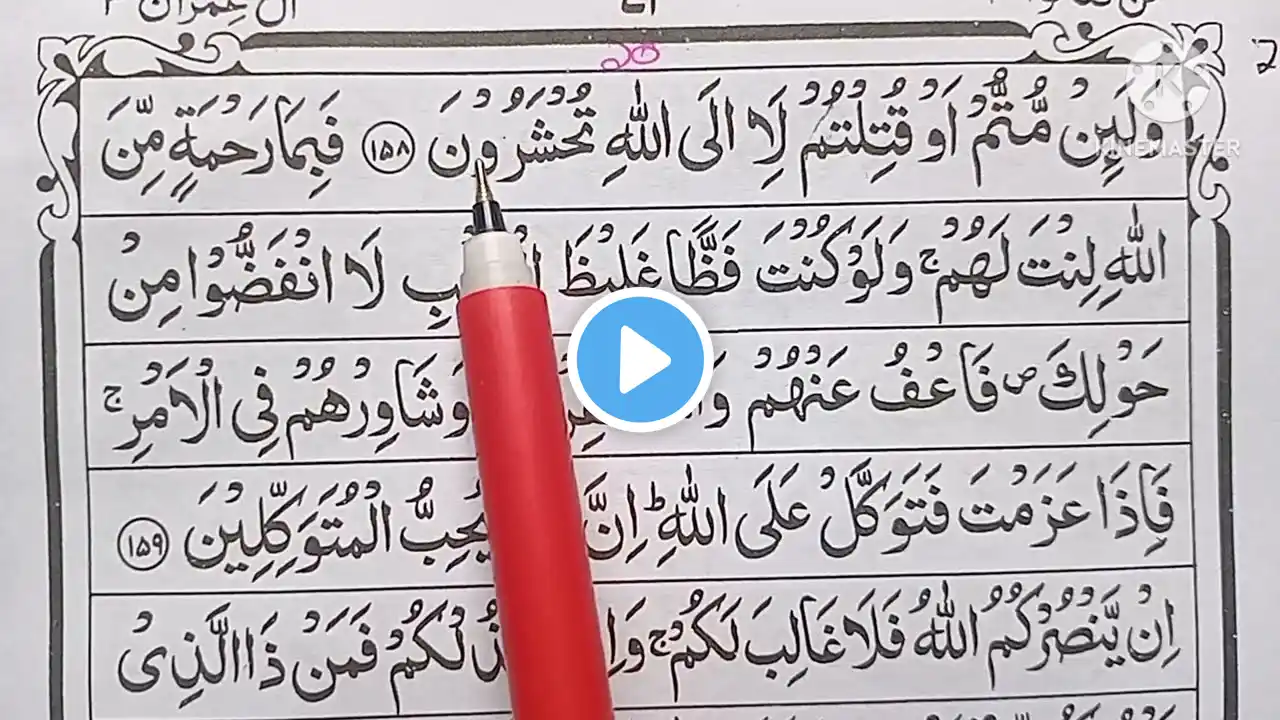 اٰل عمران ٣
وَلَئِنْ مُّتُّمْ اَوْ قُتِلْتُمْ لَاِالَى اللّٰهِ تُحْشَرُوْنَ ١٥٨ فَبِمَا رَحْمَةٍ مِّنَ
اللّٰهِ لِنْتَ لَهُمْ ۚ وَلَوْ كُنْتَ فَظًّا غَلِيْظَ لَا انْفَضُّوْا مِنْ
حَوْلِكَ ۖ فَاعْفُ عَنْهُمْ وَشَاوِرْهُمْ فِي الْاَمْرِ ۚ
فَاِذَا عَزَمْتَ فَتَوَكَّلْ عَلَى اللّٰهِ ؕ اِنَّ يُحِبُّ الْمُتَوَكِّلِيْنَ ١٥٩
اِنْ يَّنْصُرْكُمُ اللّٰهُ فَلَا غَالِبَ لَكُمْ ۚ فَمَنْ ذَا الَّذِيْ
KINEMASTER